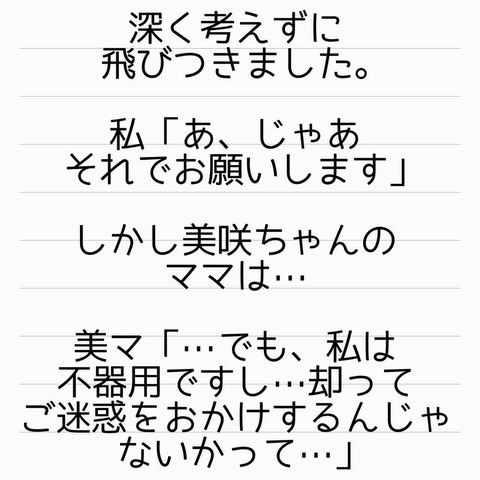 深く考えずに
飛びつきました。
私「あ、じゃあ
それでお願いします」
しかし美咲ちゃんの
ママは…
美マ「…でも、私は
不器用ですし…却って
ご迷惑をおかけするんじゃ
ないかって…」